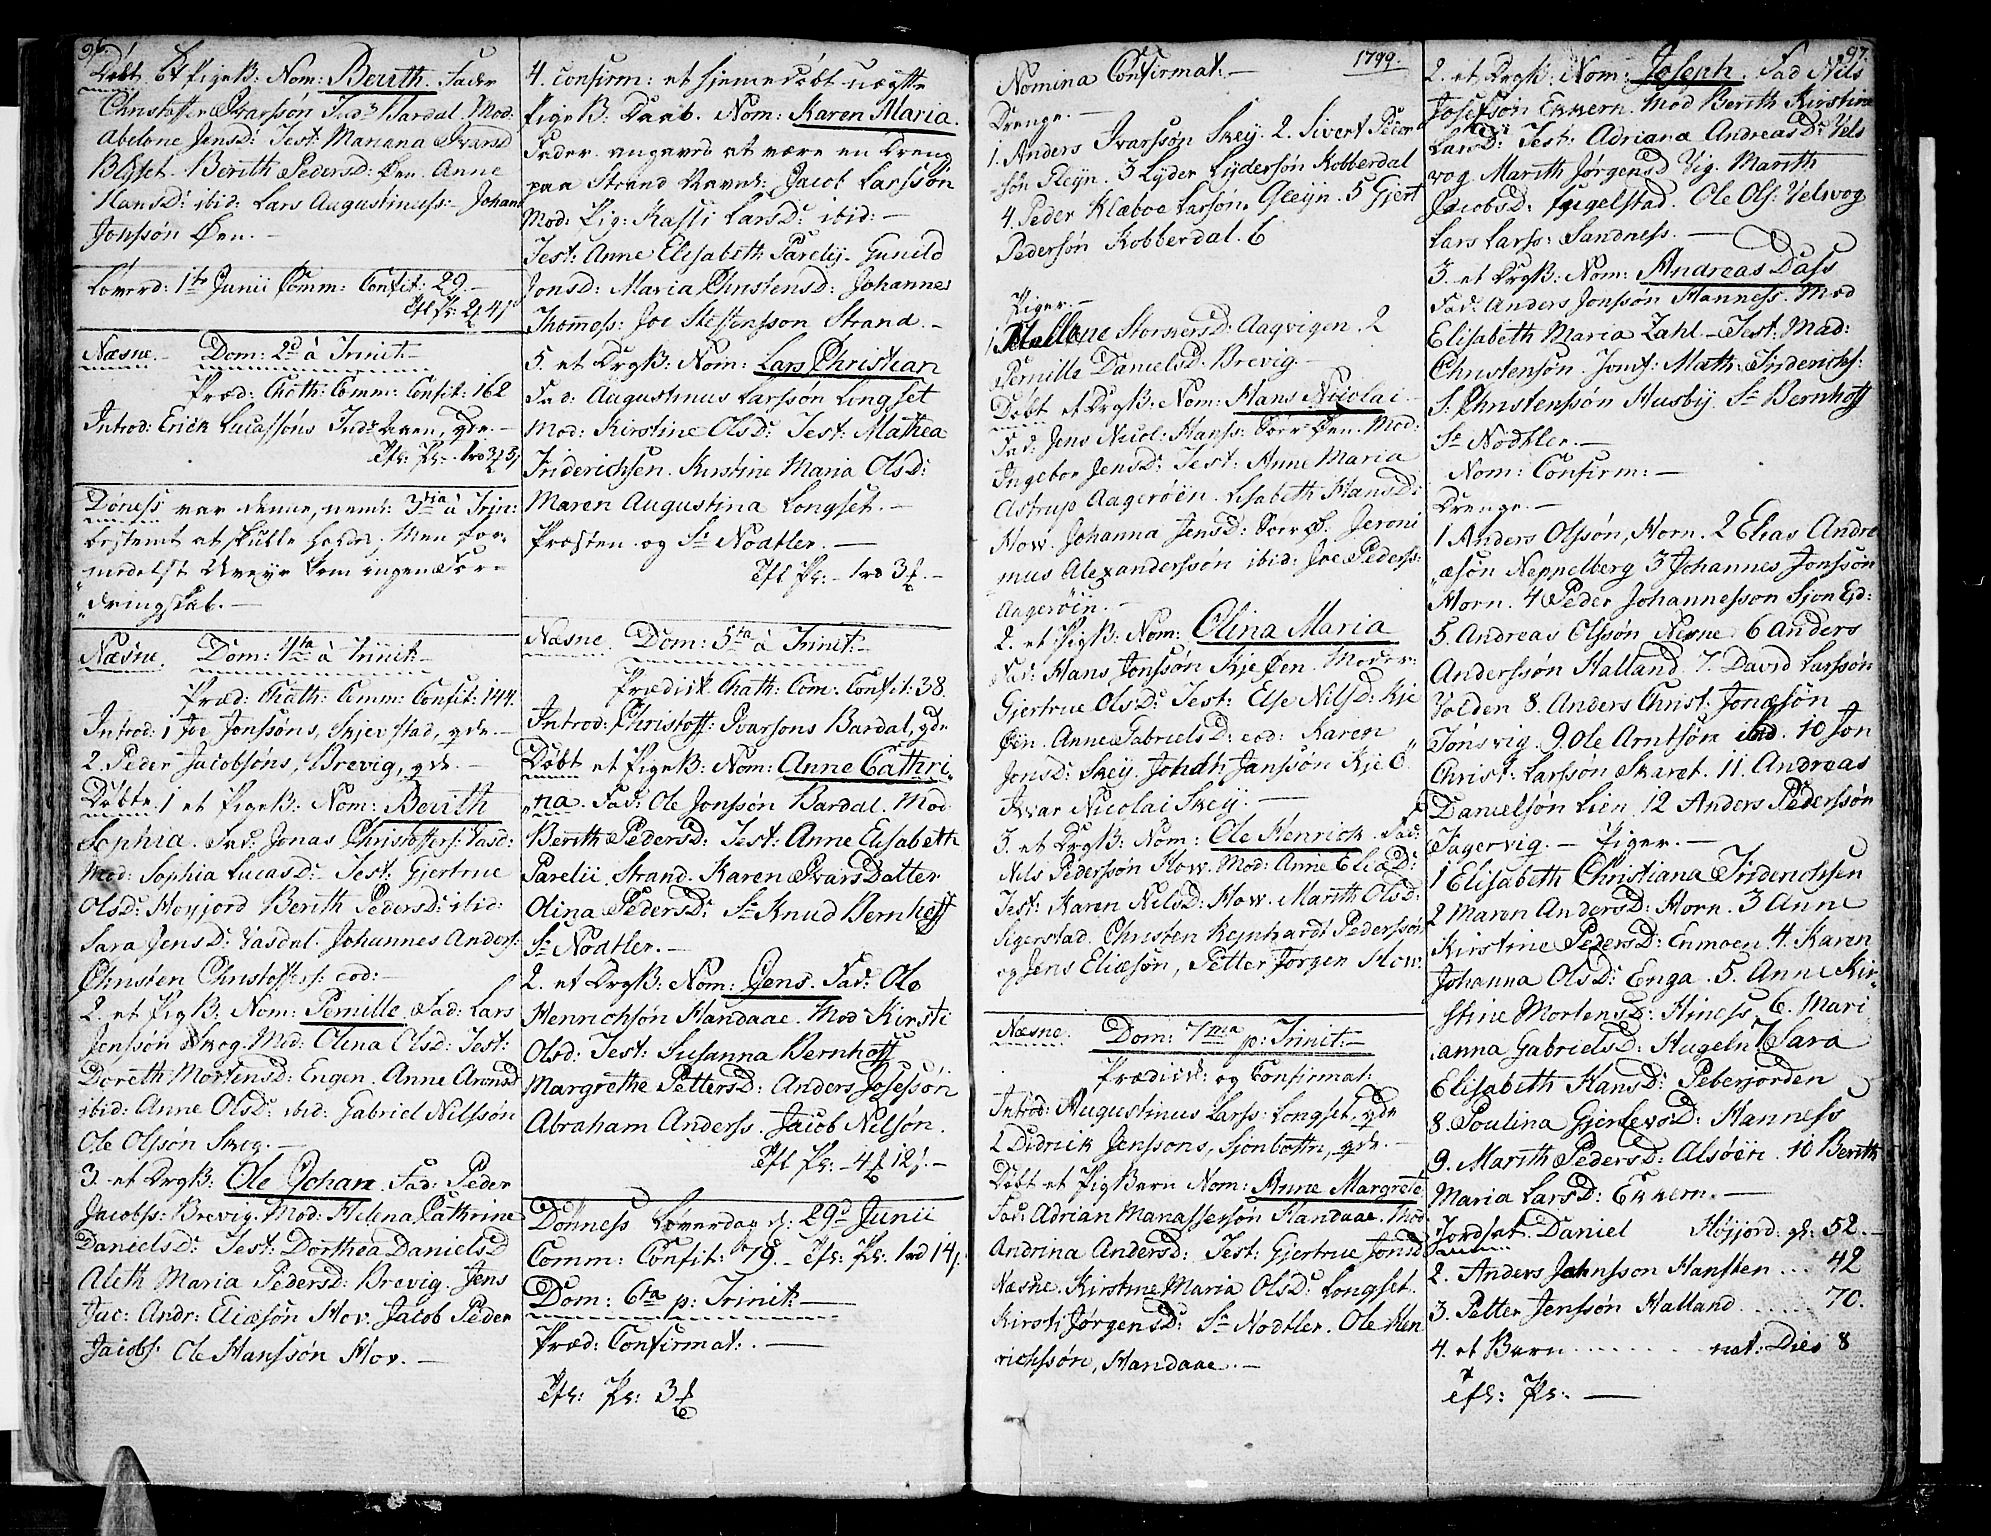 96.
Døbt Et Pigeß: Nom: Berith. Fader
Christoffer Ivarssøn Ind: Bardal. Mod:
Abelone Jensd: Test: Mariana Ivarsd
Berith Pedersd: Øen. Anne
Hansd: ibid: Lars Augustinuss: Johan
Jonssøn Øen. —
Løverd: 1ste Junii Comm: Confit: 29. —
Næsne. — Dom: 2d à Trinit: —
Præd: Cath: Comm: Confit: 162
Introd: Erick Lucassøns Ind: gde. —
Døness var denne, neml: 3tia à Trin:
bestemt at skulle holdes. Men for-
medelst Uveyr kom ingen
—
Næsne. Dom: 4ta à Trinit: —
Præd: Cath: Comm: Confit: 144.
Introd: 1 Joe Jonssøns, Skjevstad, gde. —
2. Peder Jacobsøns, Brevig, gde. —
Døbte. 1 et Pigeß: Nom: Berith
Sophia. Fad: Jonas Christoffers:
Mod: Sophia Lucasd: Test: Gjertrue
Olsd: Høyjord Berith Pedersd: ibid:
Sara Jensd: Johannes Anders:
Christen Christoff: s: eod: —
2. et Pigß: Nom: Pernille. Fad: Lars
Jonssøn Skog. Mod: Olina Olsd: Test:
Doreth Mortensd: Engen. Anne Aronsd
ibid: Anne Olsd: ibid: Gabriel Nilssøn
Ole Olssøn Skog. —
3. et Drgß: Ole Johan. Fad: Peder
Jacobss: Brevig. Mod: Helena Cathrine
Danielsd: Test: Dorthea Danielsd
Aleth Maria Pedersd: Brevig. Jens
Jac: Andr: Eliæsøn Hov. Jacob Peder
Jacobs: Ole Hanssøn Hov. —
4. Confirm: et hjemmedøbt uægte
Pigeß: Daab. Nom: Karen Maria.
Fader angaves at være en Dreng
paa Strand Navnl: Jacob Larssøn
Mod: Pig: Kasti Larsd: ibid: —
Test: Anne Elisabeth Parelij. Gunild
Jonsd: Maria Christensd: Johannes
Thomess: Joe Steffensson Strand. —
5. et Drgß: Nom: Lars Christian
Fad: Augustinus Larssøn Longset
Mod: Kirstine Olsd: Test: Mathea
Friderichsen. Kirstine Maria Olsd:
Maren Augustina Longset. —
Præsten og Sr Nodtler. —
Næsne. Dom: 5ta à Trinit: —
Prædik: Cath: Com: Confit: 38.
Introd: Christoff: Ivarsøns Bardal, gde
Døbt et Pigeß: Nom: Anne Cathri-
na. Fad: Ole Jonssøn Bardal. Mod
Berith Pedersd: Test: Anne Elisabeth
Parelii. Strand. Karen Ivarsdatter
Olina Pedersd: Sr Knud Bernhoff
Sr Nodtler. —
2. et Drgß: Nom: Jens. Fad: Ole
Henrichsøn Handaae. Mod Kirsti
Olsd: Test: Susanna Bernhoff
Margrethe Pettersd: Anders Josefsøn
Abraham Anderss. Jacob Nelsøn.
Dønness Løverdag d: 29d Junii
Comm: Confit: 79. —
Dom: 6ta p: Trinit: —
Præd: Confirmat: —
1799.
Nomina Confirmat: —
Drenge. —
1. Anders Ivarssøn Skej. 2. Sivert Peder
søn Glejn. 3 Lyder Lyderssøn Kobberdal
4 Peder Klæboe Larsøn. Glejn. 5 Gjert
Pedersøn Kobberdal. 6
Piger. —
Storkersd: Aagvigen. 2
Pernille Danielsd: Brevig. —
Døbt et Drgß: Nom: Hans Nicolai —
Fad: Jens Nicol: Hanss: Sørr Øen. Mod:
Ingebor Jensd: Test: Anne Maria
Astrup Aagerøen. Lisabeth Hansd:
How. Johanna Jensd: Sørr Ø. Jeroni
mus Alexanderssøn ibid: Joe Pederss:
Aagerøen. —
2. et Pigß: Nom: Olina Maria
Fad: Hans Jonssøn Kjeøen. Moder:
Gjertrue Olsd: Test: Else Nilsd: Kje
øen. Anne Gabrielsd: eod: Karen
Jonsd: Skej. Johan Janssøn Kje Ö
Ivar Nicolai Skej. —
3. et Drgß: Nom: Ole Henrick. Fad:
Nils Pederssøn How. Mod: Anne Eliæd:
Test: Karen Nilsd: How. Marith Olsd:
Segerstad. Christen Rejnhardt Pederssøn
og Jens Eliæsøn, Petter Jørgen How.
Næsne. Dom: 7ma p: Trinit: —
Prædik: og Confirmat:
Introd: Augustinus Larss: Longset. gde
2 Didrick Jenssøns, Sjonbotn, gde. —
Døbt et Pigbarn Nom: Anne Margrete
Fad: Adrian Manassersøn Handaae. Mod
Andrina Andersd: Test: Gjertrue Jonsd
Næsne. Kirstine Maria Olsd: Longset.
Kirsti Jørgensd: Sr Nodtler. Ole Hen
richssøn, Handaae. —
97.
2. et Drgß: Nom: Joseph. Fad Nils
Josefsøn Ekkern. Mod Berith Kirstine
Test: Adriana Andreasd: Vels
vog Marith Jørgensd Vig. Marith
Jacobsd: Fugelstad. Ole Ols: Velsvog
Lars Larss: Sandness. —
3. et Drgß: Nom: Andreas Dass
Fad: Anders Jonssøn Hanness. Mod
Elisabeth Maria Zahl — Test: Mad:
Christensøn. Jomf: Math: Friderichs:
S. Christenssøn Husbij. Sr Bernhoff
Sr Nodtler. —
Nom: Confirm: —
Drenge. —
1 Anders Olssøn, Horn. 2 Elias Andre
æsøn Neppelberg 3 Johannes Jonssøn
Horn. 4 Peder Johannesson Sjon Ejd:
5. Andreas Olssøn Nesne 6 Anders
Anderssøn Halland. 7. David Larssøn
Volden 8. Anders Christ: Jonæsøn
Tonsvig. 9. Ole Arntsøn ibid. 10 Jon
Christ: Larssøn Skaret. 11. Andreas
Danielsøn Lien 12 Anders Pederssøn
Fagervig. — Piger. —
1 Elisabeth Christiana Friderichsen
2 Maren Andersd: Horn. 3 Anne
Kirstine Pedersd: Enmoen 4. Karen
Johanna Olsd: Enga. 5. Anne Kir-
stine Mortensd: Hiness 6. Mari
anna Gabrielsd: Hugeln 7 Sara
Elisabeth Hansd: Peberjorden
8. Poulina Gjerlevsd: Hanness
9. Marith Pedersd: Alsøen. 10 Berith
Maria Larsd: Ekkern. —
Jordfæt Daniel Høyjord. gl: 52. —
2. Anders Johnsson Hansten . . . 42
3. Petter Jenssøn Halland . . . . . 70.
4. et Barn . . . . . . . nat: Dies 8